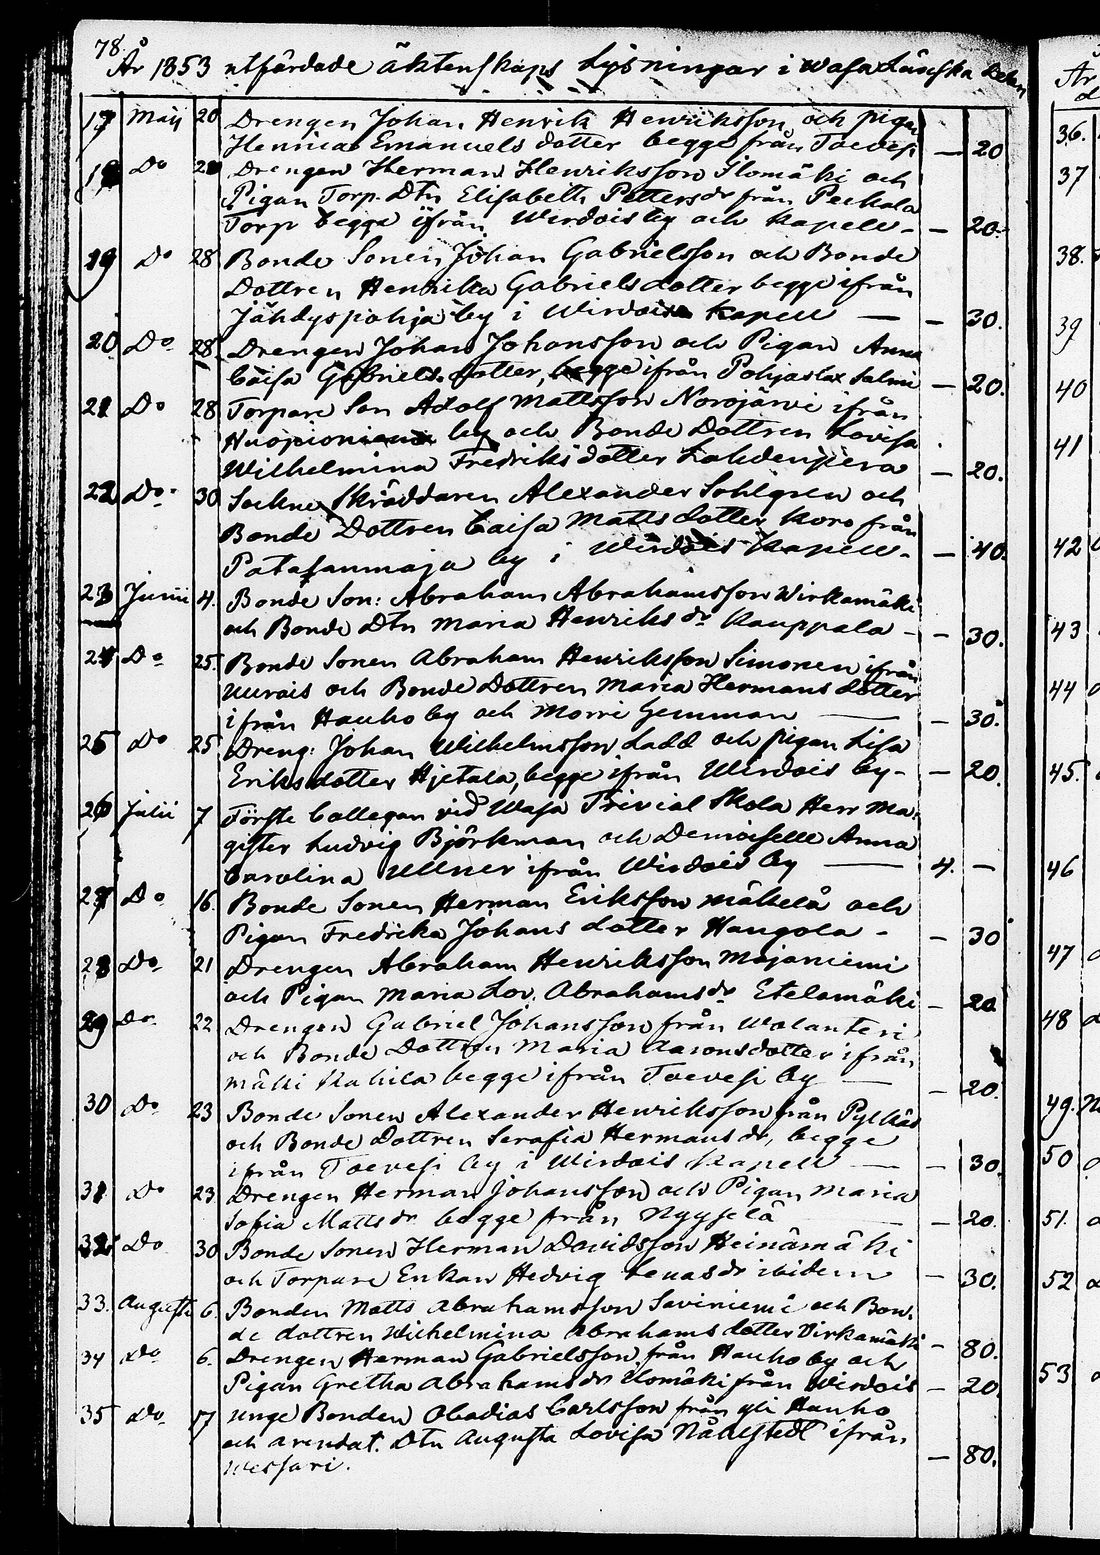 78.
År 1853 utfärdade äktenskaps Lysningar i Wasa Länska delen
17 Maij 20 Drengen Johan Henrik Henriksson och pigan
Henrica Emanuels dotter begge från Toevesi — 20
18 Do 28 Drengen Herman Henriksson Ilomäki och
Pigan Torp. Dtn Elisabeth Petters dr från Peckala
Torp begge ifrån Wirdois by och Kapell — — 20.
19 Do 28 Bonde Sonen Johan Gabrielsson och Bonde
Dottren Henrika Gabriels dotter begge ifrån
Jähdyspohja by i Wirdois Kapell — — 30.
20 Do 28 Drengen Johan Johansson och Pigan Anna
Caisa Gabriels dotter, begge ifrån Pohjaslax Salmi — 20.
21 Do 28 Torpare Son Adolf Mattsson Norojärvi ifrån
by och Bonde Dottren Lovisa
Wilhelmina Fredriks dotter Lahdenperä — 20.
22 Do 30 Sockne Skräddaren Alexander Sohlgren och
Bonde Dottren Caisa Matts dotter Koro från
by i Wirdois Kapell — — 40.
23 Junii 4. Bonde Son: Abraham Abrahamsson Wirkamäki
och Bonde Dtn Maria Henriks dr Kauppala — — 30.
24 Do 25. Bonde Sonen Abraham Henriksson Simonen ifrån
och Bonde Dottren Maria Hermans dotter
ifrån Hauho by och Morri Gemman — — 30.
25 Do 25 Dreng: Johan Wilhelmsson Ladd och pigan Lisa
Eriks dotter Hjetala, begge ifrån Wirdois by — — 20.
26 Julii 7 Förste Collegan vid Wasa Trivial Skola Herr Ma-
gister Ludvig Björkman och Demoiselle Anna
Carolina Ullner ifrån Wirdois by — 4. —
27 Do 16. Bonde Sonen Herman Eriksson Mäkelä och
Pigan Fredrika Johans dotter Hangola — — 30
28 Do 21 Drengen Abraham Henriksson Majaniemi
och Pigan Maria Lov. Abrahams dr Etelamäki — 20
29 Do 22 Drengen Gabriel Johansson från Walanteri
och Bonde Dottren Maria Aaronsdotter ifrån
Mäki Kahila begge ifrån Toevesi by — — 20.
30 Do 23 Bonde Sonen Alexander Henriksson från Pylkäs
och Bonde Dottren Serafia Hermans dr, begge
ifrån Toevesi by i Wirdois Kapell — — 30.
31 Do 23 Drengen Herman Johansson och Pigan Maria
Sofia Matts dr begge från Nyysselä — 20.
32 Do 30 Bonde Sonen Herman Davidsson Heinämäki
och Torpare Enkan Hedvig Lenas dr ibidem — 30.
33. Augusti 6. Bonden Matts Abrahamsson Saviniemi och Bon-
de dottren Wilhelmina Abrahams dotter Virkamäki — 80.
34 Do 6. Drengen Herman Gabrielsson från Hauho by och
Pigan Gretha Abrahams dr Ilomäki från Wirdois — 20.
35 Do 17 Unge Bonden Obadias Carlsson från yli Hauho
och arendat. Dtn Augusta Lovisa Nåhlstedt ifrån
Wessari. — 80.
År
36.
37
38.
39
40
41
42
43
44
45.
46
47
48
49.
50
51.
52
53